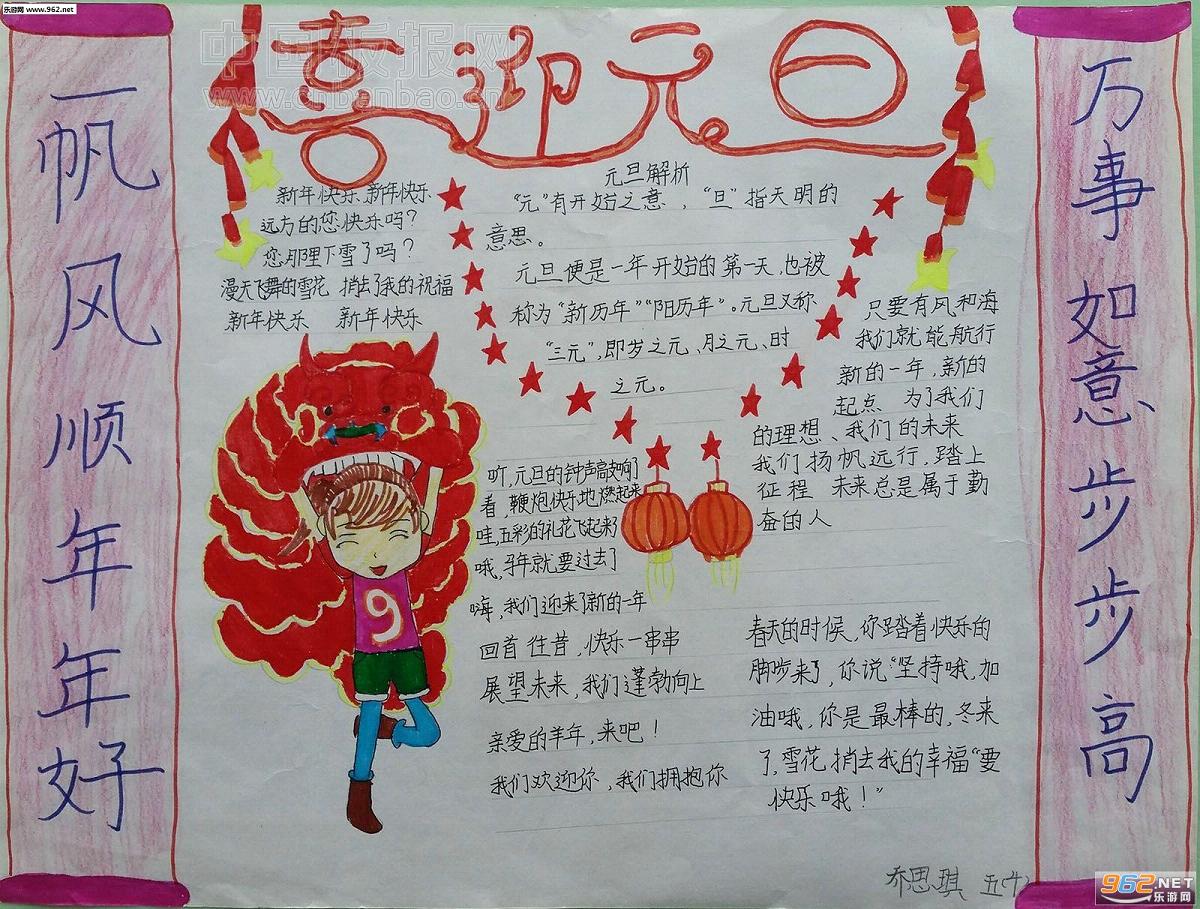 乐游网 www.962.net
中国板报网
www.cnbanbao.cn
喜迎元旦
一帆风顺年年好
万事如意步步高
新年快乐、新年快乐
远方的您快乐吗?
您那里下雪了吗?
漫天飞舞的雪花 捎去了我的祝福
新年快乐 新年快乐
元旦解析
“元”有开始之意,“旦”指天明的
意思。
元旦便是一年开始的第一天,也被
称为“新历年”“阳历年”。元旦又称
“三元”,即岁之元、月之元、时
之元。
只要有风和海
我们就能航行
新的一年,新的
起点 为了我们
的理想、我们的未来
我们扬帆远行,踏上
征程 未来总是属于勤
奋的人
听,元旦的钟声敲响了
看,鞭炮快乐地燃起来
哇,五彩的礼花飞起来了
哦,马年就要过去了
嗨,我们迎来了新的一年
回首往昔,快乐一串串
展望未来,我们蓬勃向上
亲爱的羊年,来吧!
我们欢迎你,我们拥抱你
9
春天的时候,你踏着快乐的
脚步来了,你说“坚持哦,加
油哦,你是最棒的,冬来
了,雪花捎去我的幸福“要
快乐哦!”
乔思琪 五(4)
962.NET
乐游网